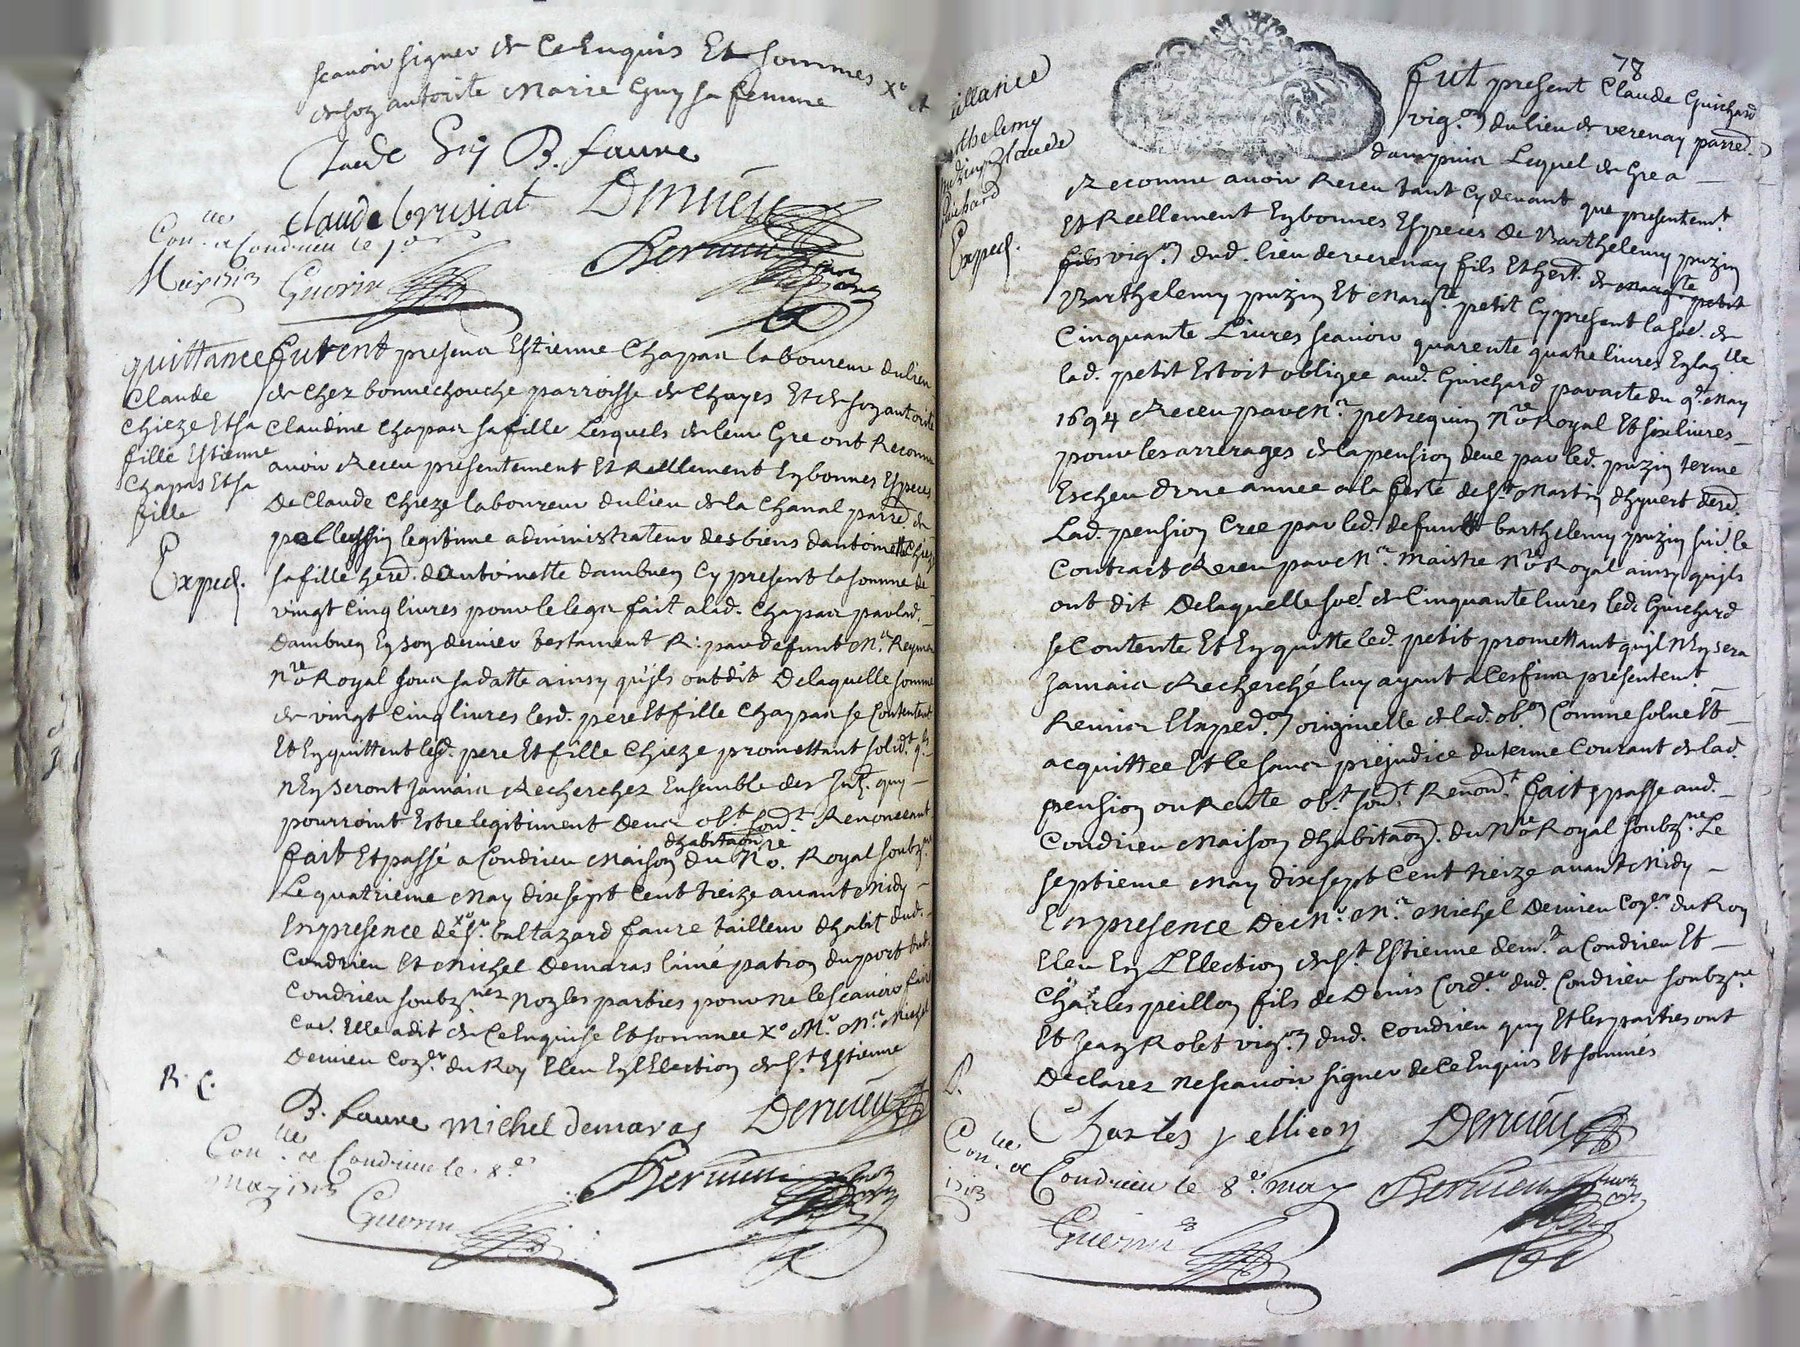 scauoir signer de ce Enquis Et sommes x.e et
de soz autorite Marie Guy sa femme
B. faure
claude brusiat Deruieu
Con.lle a Condrieu le
May 1713 Guerin Deruieu
quittance
Claude
Chieze Et sa
fille Estienne
Chapas Et sa
fille
Exped.
furent presens Estienne Chapas laboureur du lieu
de Chez bonnechouche parroisse de Chayes Et de soz autorite
Claudine Chapas sa fille Lesquels de leur Gre ont Reconnu
auoir Receu presentement Et Reellement En bonnes Especes
De Claude Chieze laboureur du lieu de la Chanal parred. de
pellussin legitime administrateur des biens dantoinette Chieze
sa fille hered. dantoinette dambuen Cy present la somme de
vingt Cinq liures pour le legat fait a lad. Chapas par lad.
Dambuen En son dernier testament R: par defunt M.e Reymon
N.re Royal sous sa datte ainsy quils ont dit De laquelle somme
de vingt Cinq liures lesd. pere Et fille Chapas se Contentent
Et En quittent lesd. pere Et fille Chieze promettant solid.t q.ls
nEn seront Jamais Recherchez Ensemble des Int. quy
pourroint Estre legitiment Deus ob.t soub.t Renonceant
fait Et passé a Condrieu Maison dhabitaon du N.re Royal soubz.né
Le quatrieme May dix sept Cent treize auant Midy
En presence de x.e s.r baltazard faure tailleur dhabit dud.
Condrieu Et Michel Demaras lainé patron du port dud.
Condrieu soubz.nez Non les parties pour ne le scauoir fait
Elle a dit de Ce Enquise Et sommee x.e M.e M.re Michel
Deruieu Con.er du Roy Eleu En lElection de s.t Estienne
R. C.
B. faure Michel demaras Deruieu
Con.lle a Condrieu le 8.e
May 1713 Guerin Deruieu
78
quittance
Barthelemy
puzin Claude
Guichard
Exped.
fut present Claude Guichard
vig.on du lieu de verenay parred.
dampuis Lequel de Gre a
Reconnu auoir Receu tant Cy deuant que presentem.t
Et Reellement En bonnes Especes De Barthelemy puzin
fils vig.on dud. lieu de verenay fils Et hert. de Marg.te petit
Barthelemy puzin Et Marg.te petit Cy present la soe. de
Cinquante Liures scauoir quarente quatre liures En laq.lle
lad. petit Estoit obligee aud. Guichard par acte du 9.e May
1694 Receu par M.e petrequin N.re Royal Et six liures
pour les arrerages de la pension deue par led. puzin terme
Escheu dune annee a la feste de s.t Martin dhyuert dered.
Lad. pension Cree par led. defunt barthelemy puzin sui. le
Contract Receu par M.e Maistre N.re Royal ainsy quils
ont dit De laquelle soe. de Cinquante liures led. Guichard
se Contente Et En quitte led. petit promettant quil nEn sera
Jamais Recherché luy ayant a Ces fins presentem.t
Remis lExped.on originelle de lad. ob.on Comme solue Et
acquittee Et le sans prejudice du terme Courant de lad.
pension ou Rente ob.t soub.t Renon.t fait & passe aud.
Condrieu Maison dhabitaon. du N.re Royal soubz.né Le
septieme May dix sept Cent treize auant Midy
En presence De M.e M.re Michel Deruieu Con.er du Roy
Eleu En LElection de s.t Estienne dem.t a Condrieu Et
Charles peillon fils de Denis Cord.er dud. Condrieu soubz.né
Et Jean Robet vig.on dud. Condrieu quy Et les parties ont
Declarez ne scauoir signer de Ce Enquis Et sommés
Charles pellieon Deruieu
Con.lle a Condrieu le 8.e May
1713 Guerin Deruieu